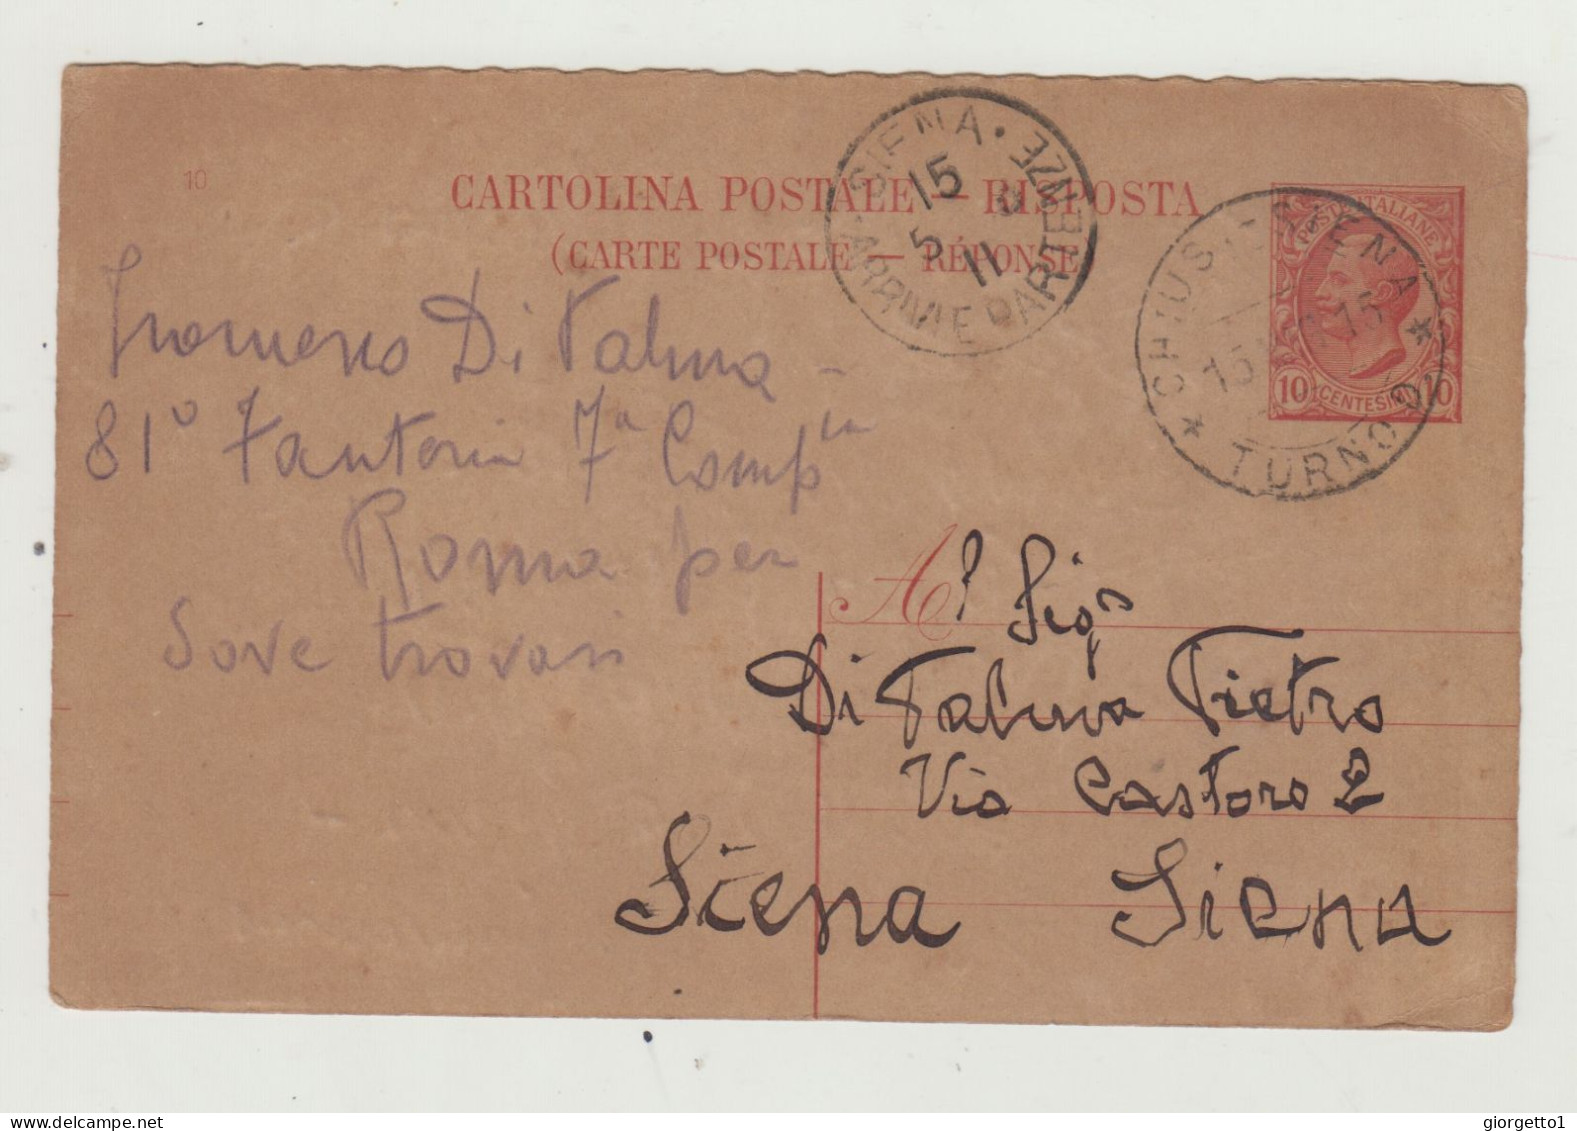 10
CARTOLINA POSTALE — RISPOSTA
(CARTE POSTALE — RÉPONSE
SIENA
15
5 11
ARRIVI E PARTENZE
CHIUSI - SIENA
15 15
TURNO
POSTE ITALIANE
10 CENTESIMI 10
Di Palma -
81° Fanteria 7ª Compia
Roma per
Dove trovasi
Al Sigr
Di Palma Pietro
Via Castoro 2
Siena Siena
giorgetto1